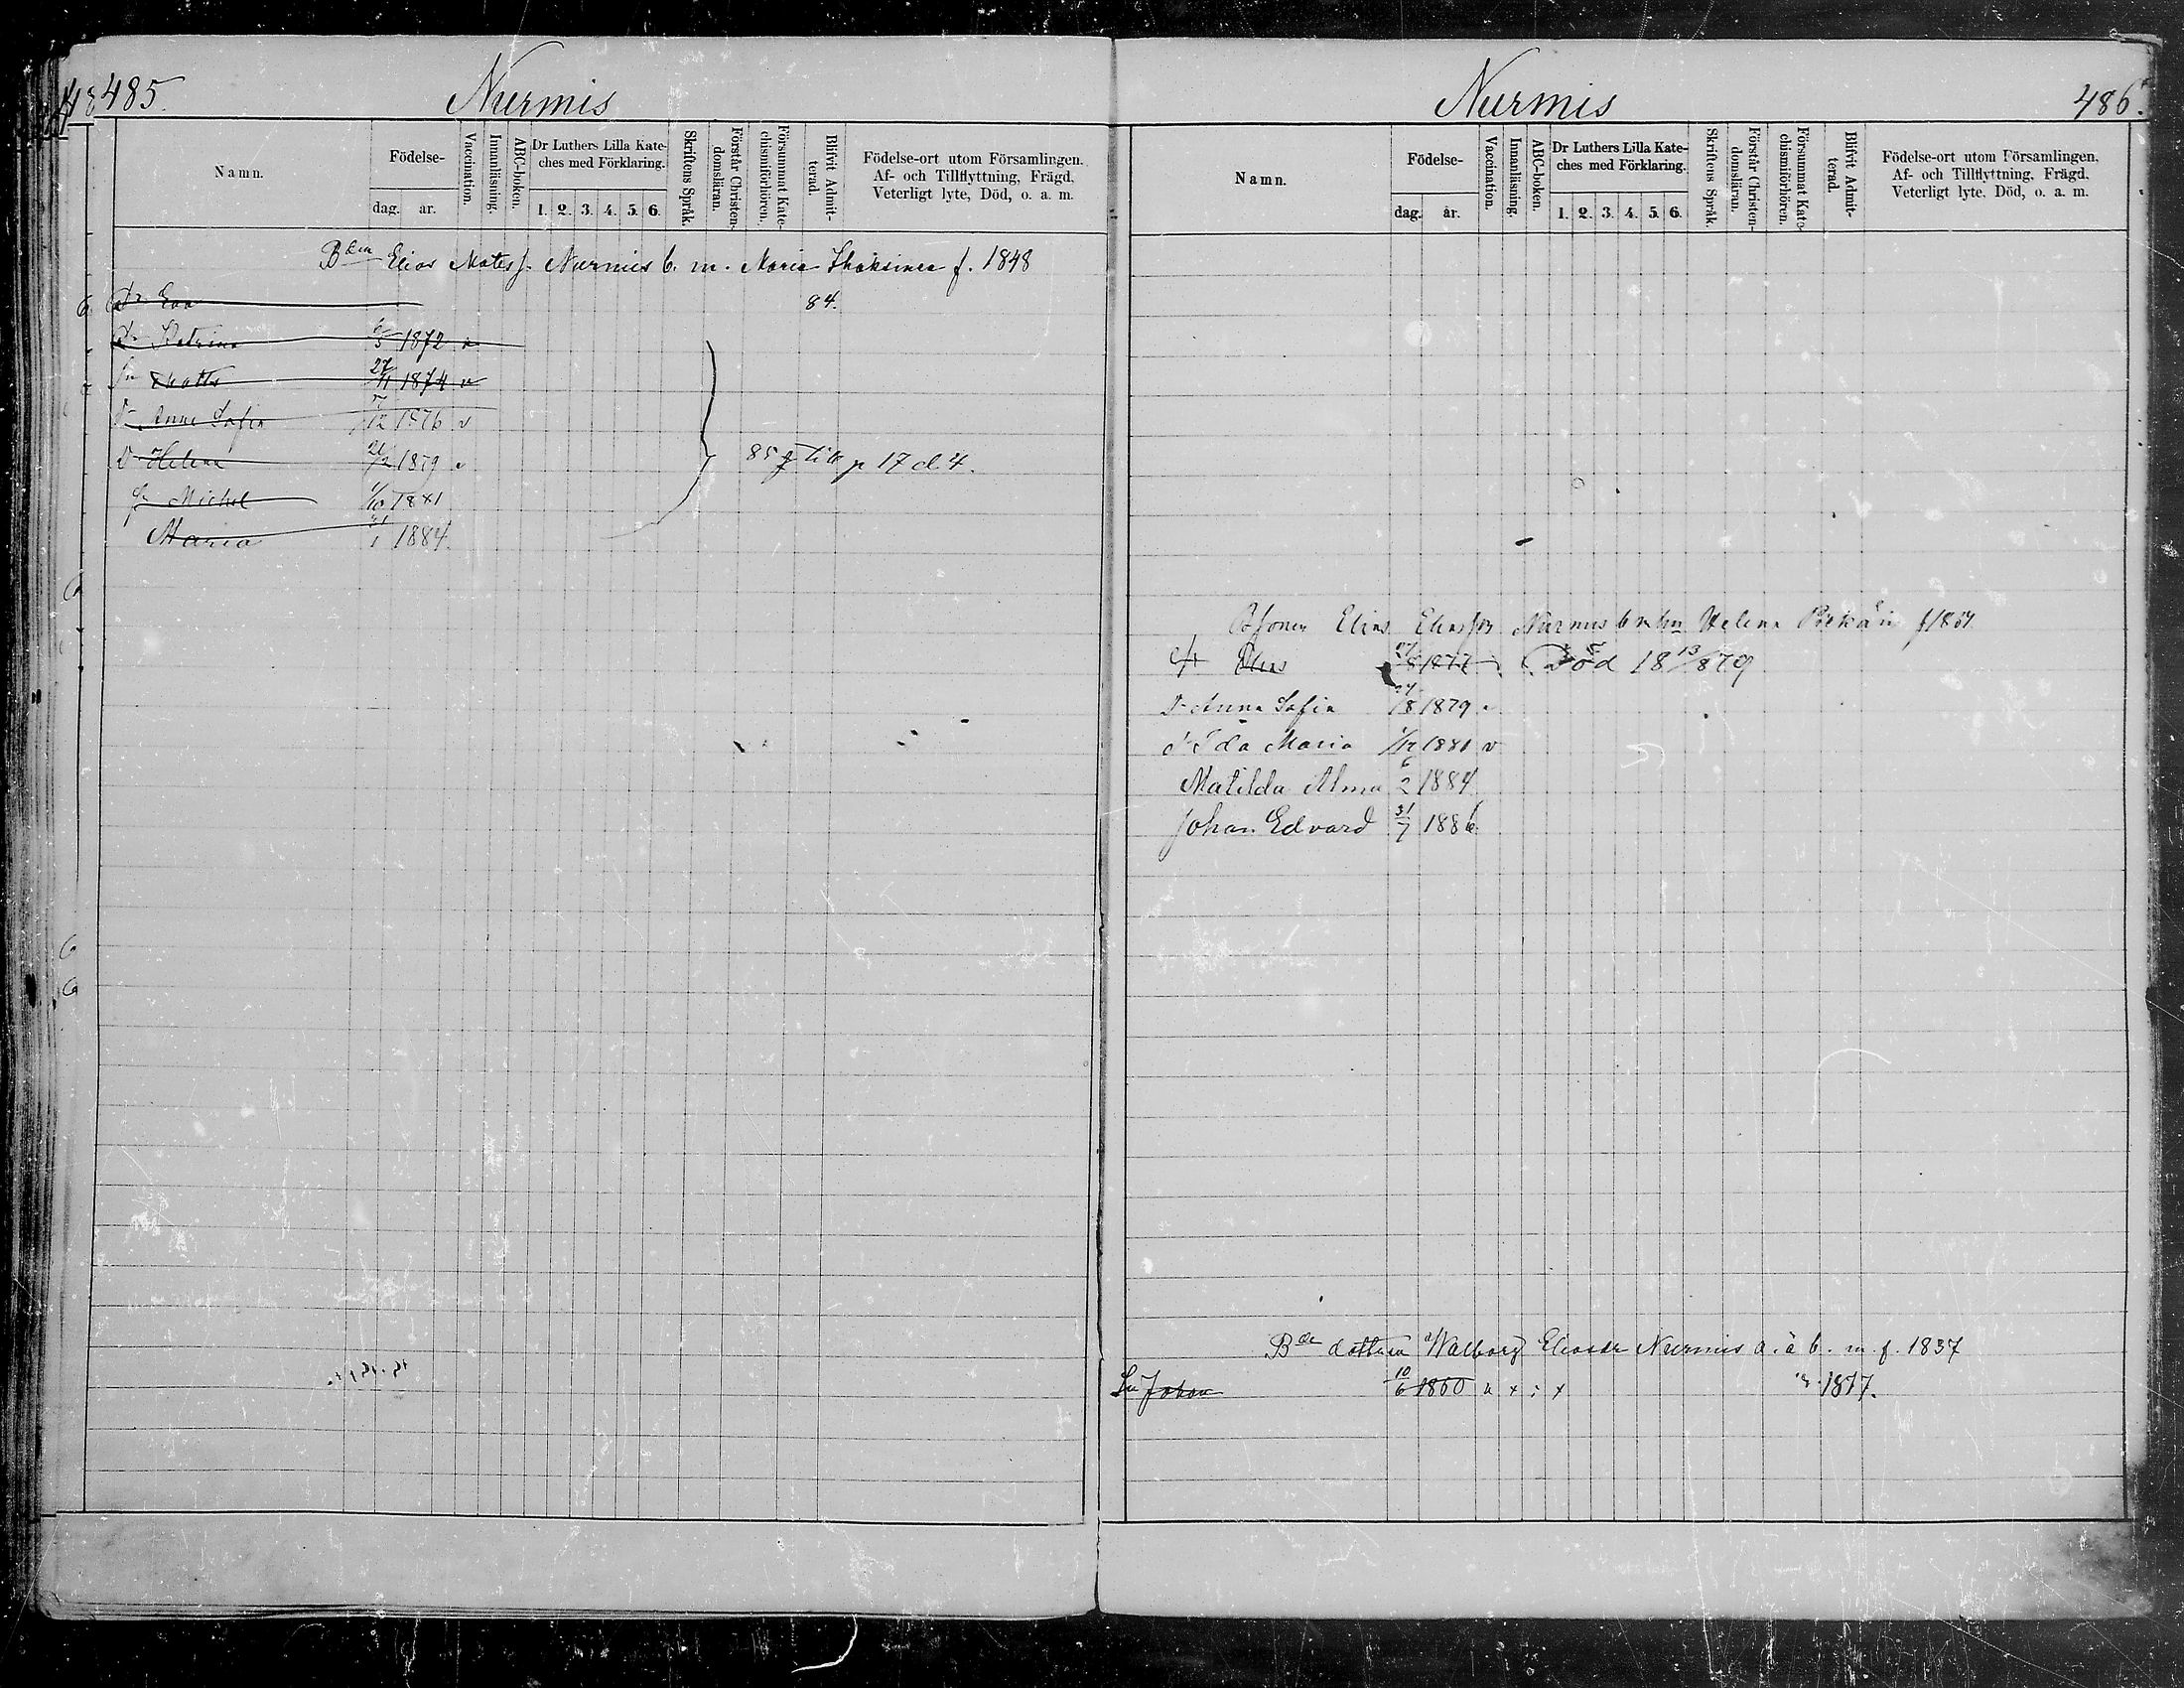 485.
Nurmis
Namn.
Födelse-
dag. år.
Vaccination.
Innanläsning.
ABC-boken.
Dr Luthers Lilla Kate-
ches med Förklaring.
1. 2. 3. 4. 5. 6.
Skriftens Språk.
Förstår Christen-
domsläran.
Försummat Kate-
chismiförhören.
Blifvit Admit-
terad.
Födelse-ort utom Församlingen.
Af- och Tillflyttning, Frägd,
Veterligt lyte, Död, o. a. m.
Bden Elias Matss. Nurmis b. m. Maria f. 1848
Dr Eva 84.
Dr Katrina 6/5 1872 v
Sn Matts 27/11 1874 v
Dr Anna Sofia /12 1876 v
Dr Helena 1879 v
85 till p 17 d. 4.
Sn Michel 1/10 1881
Maria 31/1 1884.
Nurmis
486.
Namn.
Födelse-
dag. år.
Vaccination.
Innanläsning.
ABC-boken.
Dr Luthers Lilla Kate-
ches med Förklaring.
1. 2. 3. 4. 5. 6.
Skriftens Språk.
Förstår Christen-
domsläran.
Försummat Kate-
chismiförhören.
Blifvit Admit-
terad.
Födelse-ort utom Församlingen,
Af- och Tillflyttning, Frägd,
Veterligt lyte, Död, o. a. m.
Elias Eliasson Nurmis Helena
Elias 1877 Död 18 13/8 79
Dr Anna Sofia 24/8 1879 v
Dr Ida Maria 1/12 1881 v
Matilda Alma 6/2 1884
Johan Edvard 31/7 1886.
Bde dottren Walborg Eliasdr Nurmis a. ä b. m. f. 1837
Sn Johan 10/6 1860 1877.